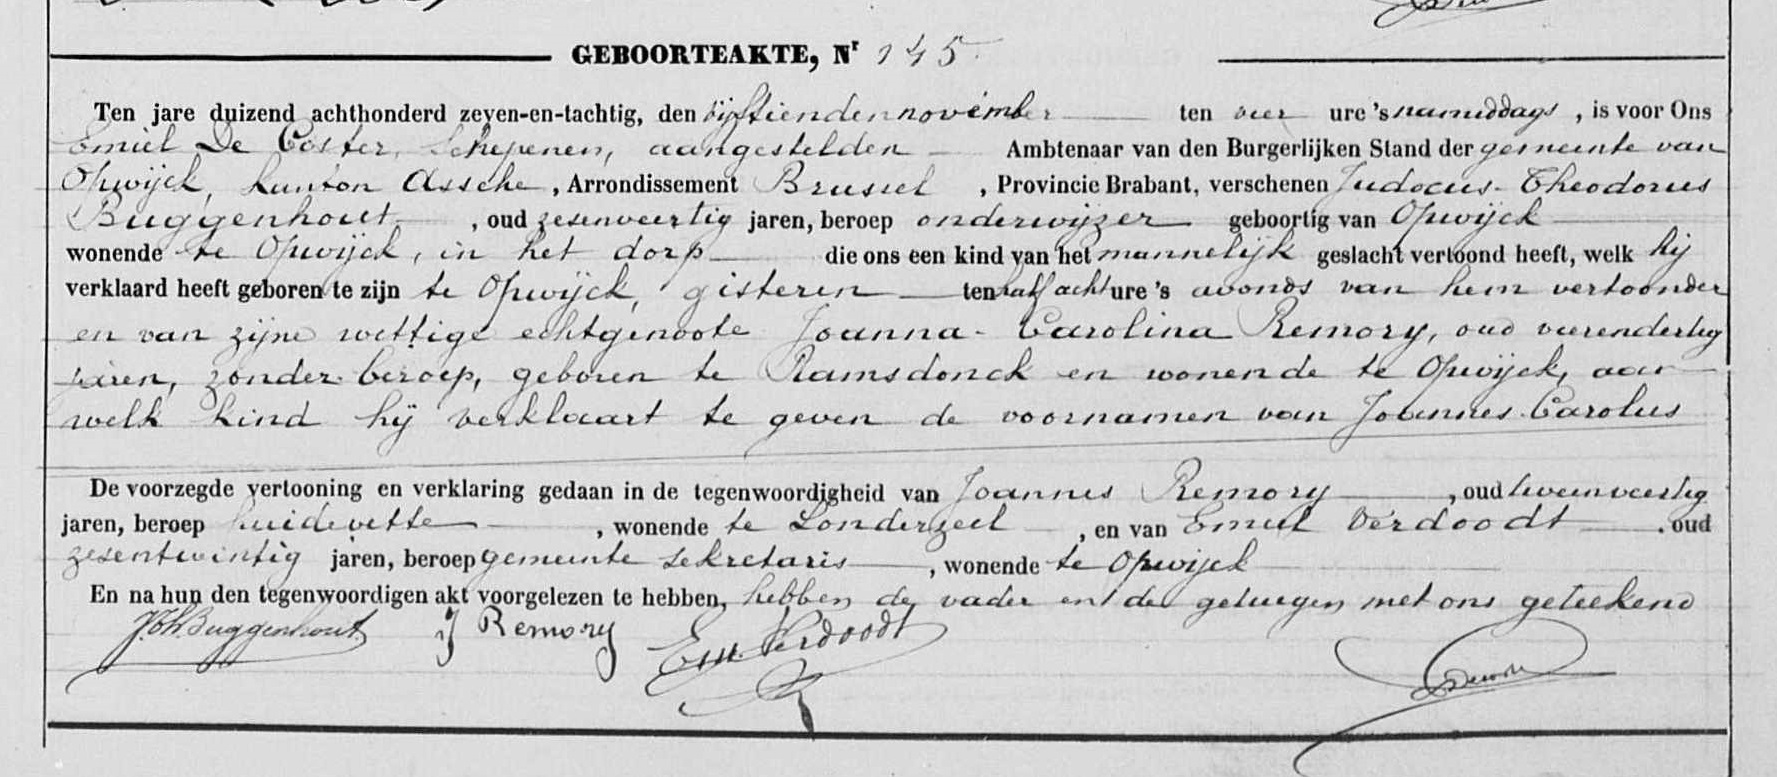 GEBOORTEAKTE, Nr 145
Ten jare duizend achthonderd zeven-en-tachtig, den vijftienden november ten vier ure 's namiddags, is voor Ons
Emiel De Coster, Schepenen, aangestelden Ambtenaar van den Burgerlijken Stand der gemeente van
Opwijck, kanton Assche, Arrondissement Brussel, Provincie Brabant, verschenen Judocus-Theodorus
Buggenhout, oud zesenveertig jaren, beroep onderwijzer geboortig van Opwijck
wonende te Opwijck, in het dorp die ons een kind van het mannelijk geslacht vertoond heeft, welk hij
verklaard heeft geboren te zijn te Opwijck, gisteren ten half acht ure 's avonds van hem vertoonder
en van zijne wettige echtgenoote Joanna-Carolina Remory, oud vierendertig
jaren, zonder beroep, geboren te Ramsdonck en wonende te Opwijck, aan
welk kind hij verklaart te geven de voornamen van Joannes-Carolus
De voorzegde vertooning en verklaring gedaan in de tegenwoordigheid van Joannes Remory, oud tweeenveertig
jaren, beroep huidevetter, wonende te Londerzeel, en van Emiel Verdoodt. oud
zesentwintig jaren, beroep gemeente sekretaris, wonende te Opwijck
En na hun den tegenwoordigen akt voorgelezen te hebben, hebben de vader en de getuigen met ons geteekend
J.Th.Buggenhout J Remory Em. Verdoodt